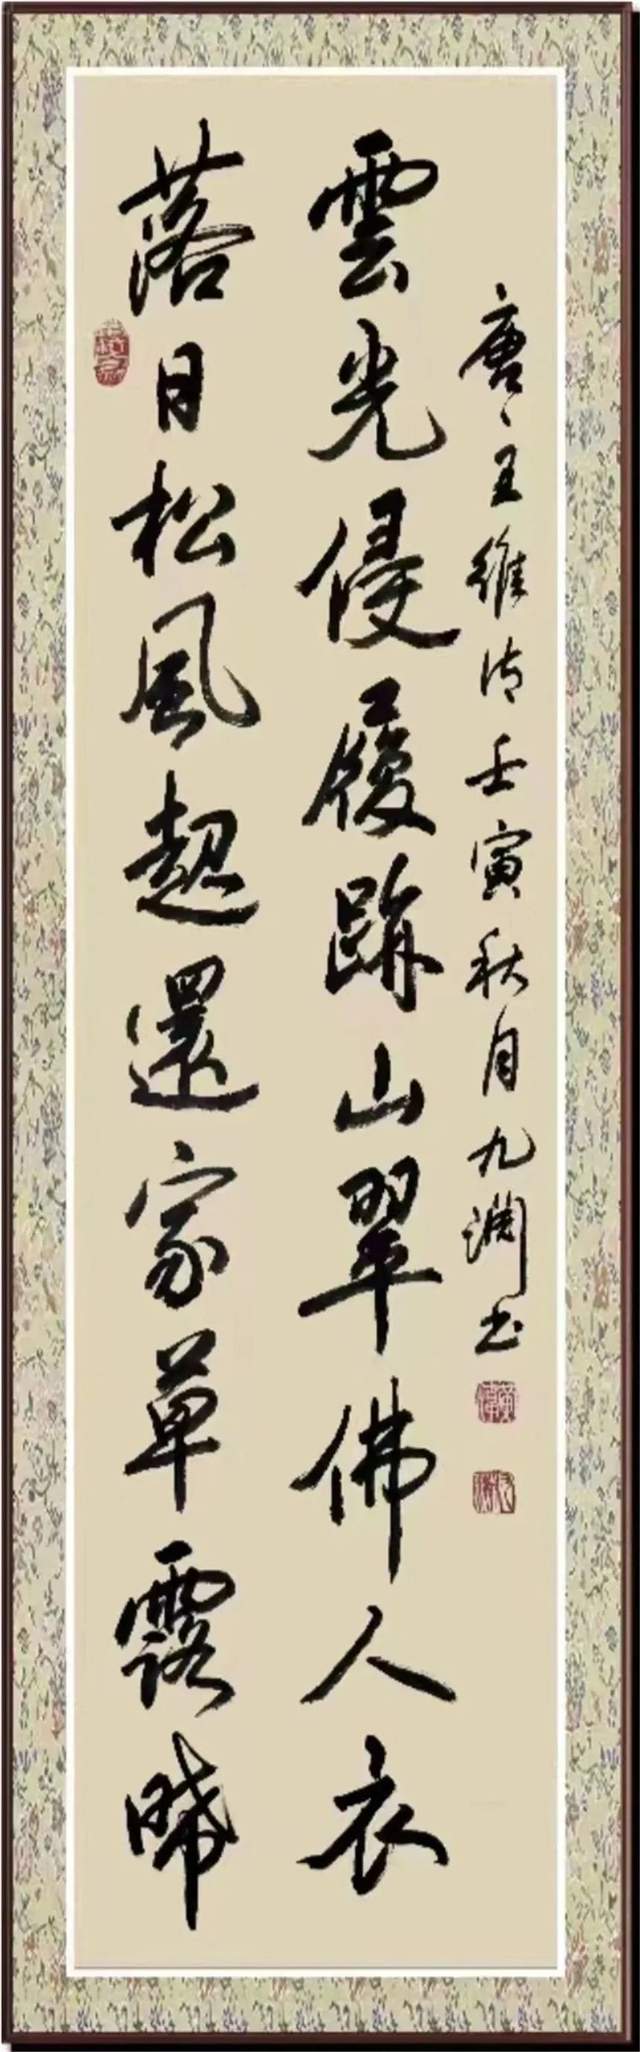 落日松風起還家草露晞
雲光侵履跡山翠佛人衣
唐、王維诗壬寅秋月九渊书